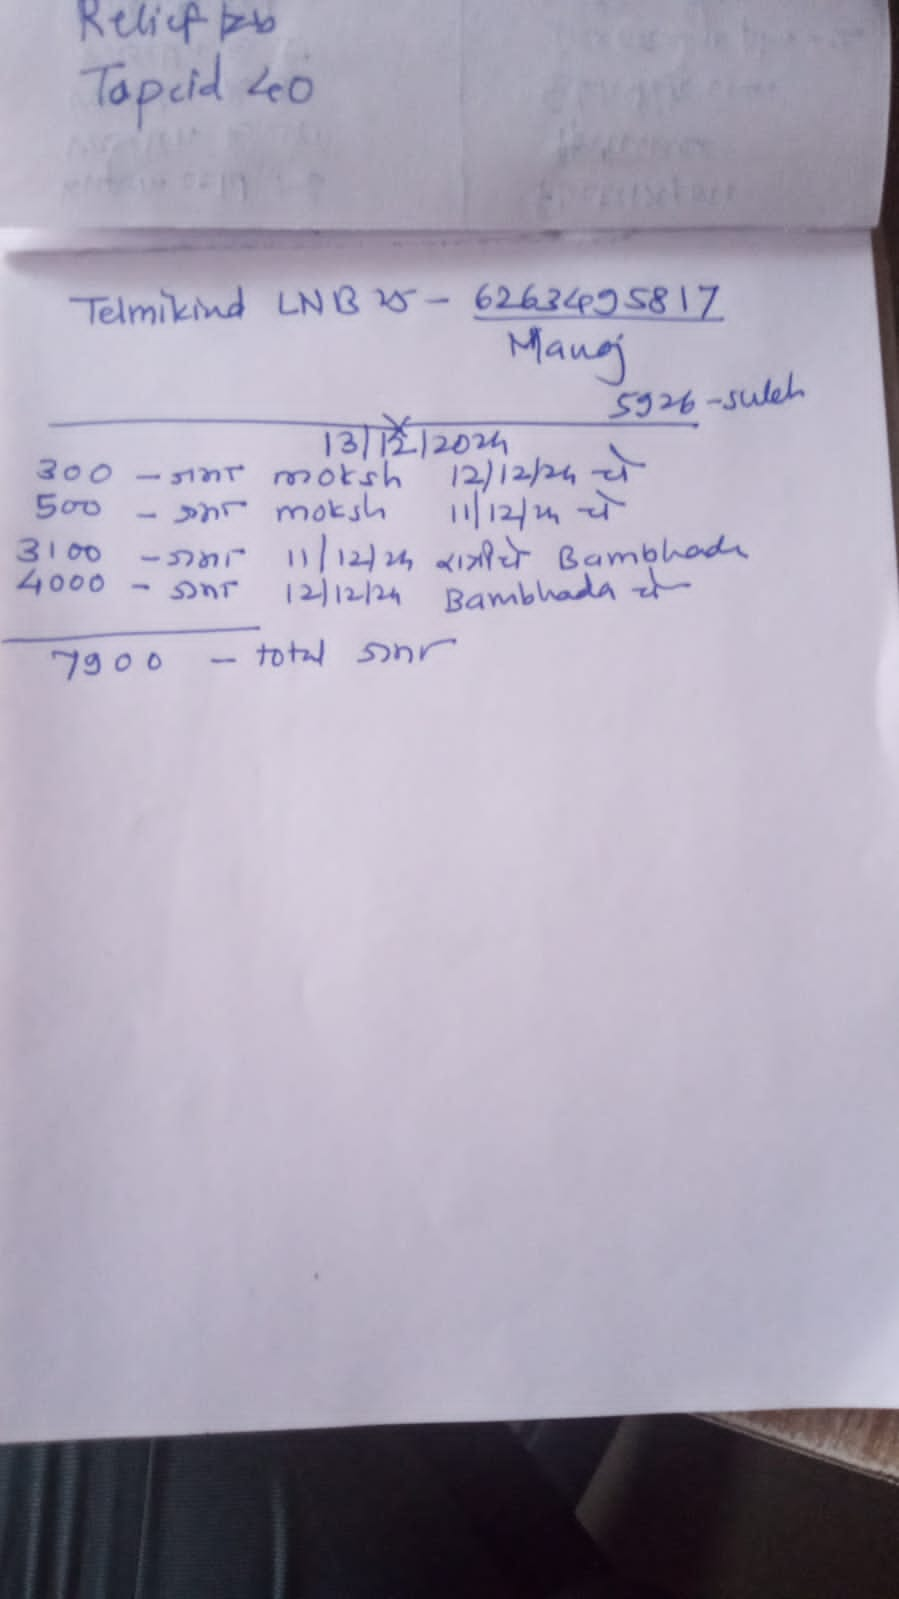 Relief tab
Tapcid 40
Telmikind LNB 25 - 6263495817
Manoj
5926 - suleh
13/12/2024
300 - જમા moksh 12/12/24 ના
500 - જમા moksh 11/12/24 ના
3100 - જમા 11/12/24 Bambhada
4000 - જમા 12/12/24 Bambhada ના
7900 - total જમા